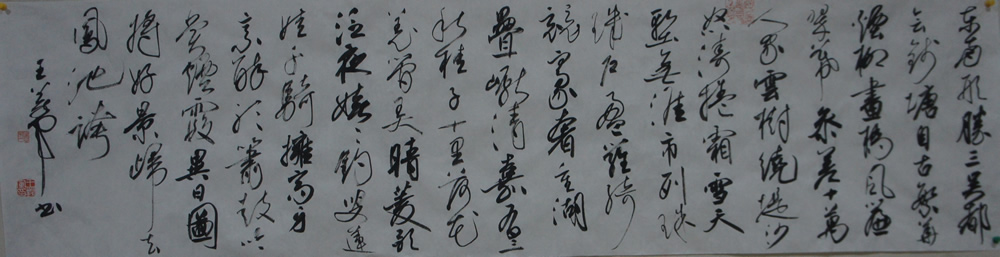 东南形勝三吳都
会錢塘自古繁華
烟柳畫橋風簾
翠幕参差十萬
人家雲樹繞堤沙
怒濤捲霜雪天
塹無涯市列珠
璣户盈羅綺
競豪奢重湖
疊巘清嘉有三
秋桂子十里荷花
羌管弄晴菱歌
泛夜嬉〻釣叟蓮
娃千騎擁高牙
乘醉聽簫鼓吟
賞煙霞異日圖
將好景歸去
鳳池誇
王 书